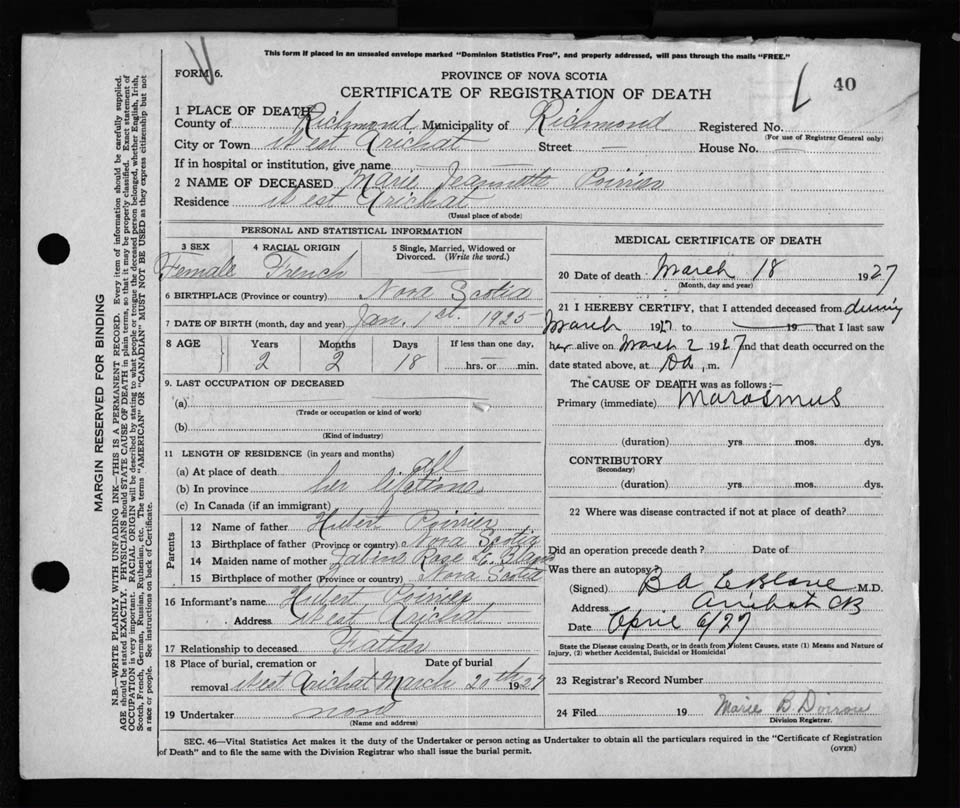 This form if placed in an unsealed envelope marked "Dominion Statistics Free", and properly addressed, will pass through the mails "FREE."
FORM 6.
PROVINCE OF NOVA SCOTIA
CERTIFICATE OF REGISTRATION OF DEATH
40
1 PLACE OF DEATH
County of Richmond Municipality of Richmond Registered No.
(For use of Registrar General only)
City or Town West Arichat Street — House No.
If in hospital or institution, give name —
2 NAME OF DECEASED Marie Jeannette Poirier
Residence West Arichat
(Usual place of abode)
PERSONAL AND STATISTICAL INFORMATION
3 SEX 4 RACIAL ORIGIN 5 Single, Married, Widowed or Divorced. (Write the word.)
Female French
6 BIRTHPLACE (Province or country) Nova Scotia
7 DATE OF BIRTH (month, day and year) Jan. 1st. 1925
8 AGE Years Months Days If less than one day,
2 2 18 hrs. or min.
9. LAST OCCUPATION OF DECEASED
(a)
(Trade or occupation or kind of work)
(b)
(Kind of industry)
11 LENGTH OF RESIDENCE (in years and months)
(a) At place of death all
(b) In province her lifetime
(c) In Canada (if an immigrant)
Parents
12 Name of father Hubert Poirier
13 Birthplace of father (Province or country) Nova Scotia
14 Maiden name of mother Rose
15 Birthplace of mother (Province or country) Nova Scotia
16 Informant's name Hubert Poirier
Address West Arichat
17 Relationship to deceased Father
18 Place of burial, cremation or Date of burial
removal West Arichat March 20th 1927
19 Undertaker none
(Name and address)
MEDICAL CERTIFICATE OF DEATH
20 Date of death March 18 1927
(Month, day and year)
21 I HEREBY CERTIFY, that I attended deceased from during
March 1927 to 19 that I last saw
her alive on March 2 1927 and that death occurred on the
date stated above, at m.
The CAUSE OF DEATH was as follows:—
Primary (immediate) Marasmus
(duration) yrs. mos. dys.
CONTRIBUTORY
(Secondary)
(duration) yrs. mos. dys.
22 Where was disease contracted if not at place of death?
Did an operation precede death? Date of
Was there an autopsy?
(Signed) B A LeBlanc M.D.
Address Arichat CB
Date April 6/27
State the Disease causing Death, or in death from Violent Causes, state (1) Means and Nature of
Injury, (2) whether Accidental, Suicidal or Homicidal
23 Registrar's Record Number
24 Filed 19 Marie B
Division Registrar.
SEC. 46—Vital Statistics Act makes it the duty of the Undertaker or person acting as Undertaker to obtain all the particulars required in the "Certificate of Registration
of Death" and to file the same with the Division Registrar who shall issue the burial permit.
(OVER)
MARGIN RESERVED FOR BINDING
N.B.—WRITE PLAINLY WITH UNFADING INK—THIS IS A PERMANENT RECORD. Every item of information should be carefully supplied.
AGE should be stated EXACTLY. PHYSICIANS should STATE CAUSE OF DEATH in plain terms, so that it may be properly classified. Exact statement of
OCCUPATION is very important. RACIAL ORIGIN will be described by stating to what people or tongue the deceased person belonged, whether English, Irish,
Scotch, French, German, Russian, Ruthenian, etc. The terms "AMERICAN" OR "CANADIAN" MUST NOT BE USED as they express citizenship but not
a race or people. See instructions on back of Certificate.